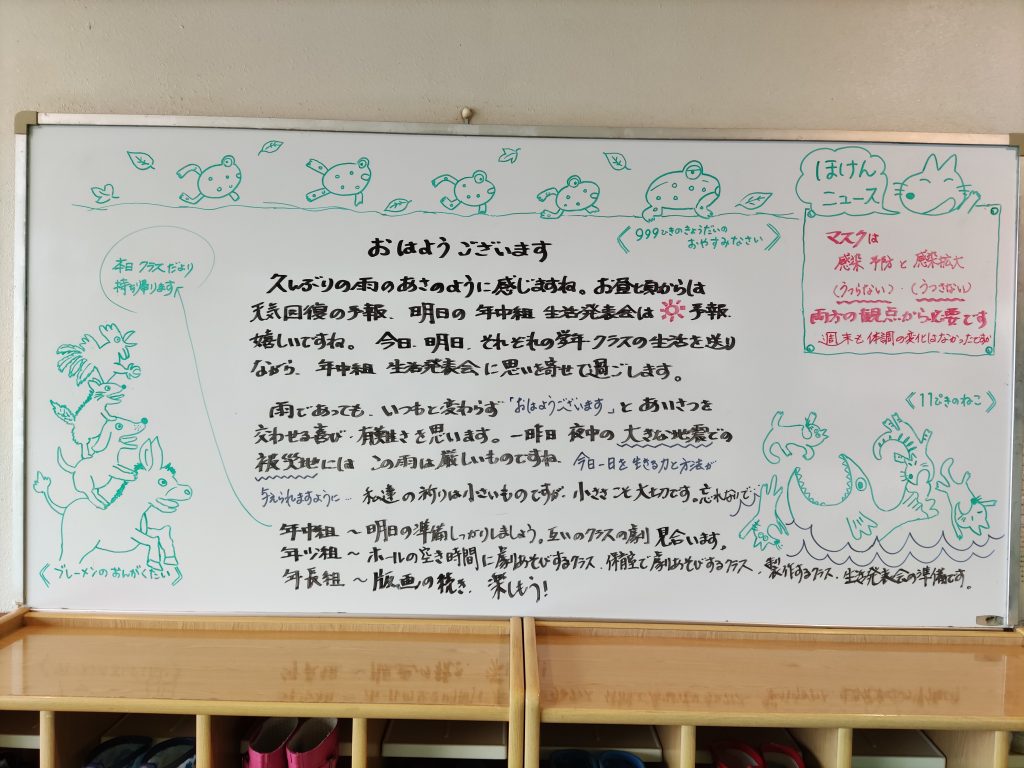 おはようございます
久しぶりの雨のあさのように感じますね。お昼頃からは
天気回復の予報、明日の年中組 生活発表会は予報、
嬉しいですね。今日、明日、それぞれの学年・クラスの生活を送り
ながら、年中組 生活発表会に思いを寄せて過ごします。
雨であっても、いつもと変わらず「おはようございます」とあいさつを
交わせる喜び・有難さを思います。一昨日 夜中の大きな地震での
被災地には この雨は厳しいものですね、今日一日を生きる力と方法が
与えられますように… 私達の祈りは小さいものですが、小ささこそ大切です。忘れないで
年中組 ~ 明日の準備しっかりしましょう。互いのクラスの劇 見合います。
年少組 ~ ホールの空き時間に劇あそびするクラス、保育室で劇あそびするクラス、製作するクラス、生活発表会の準備です。
年長組 ~ 版画の続き、楽しもう!
本日 クラスだより
持ち帰ります
《ブレーメンのおんがくたい》
《999ひきのきょうだいの
おやすみなさい》
ほけん
ニュース
マスクは
感染予防と感染拡大
(うつらない)・(うつさない)
両方の観点から必要です
週末も体調の変化はなかったですか
《11ぴきのねこ》